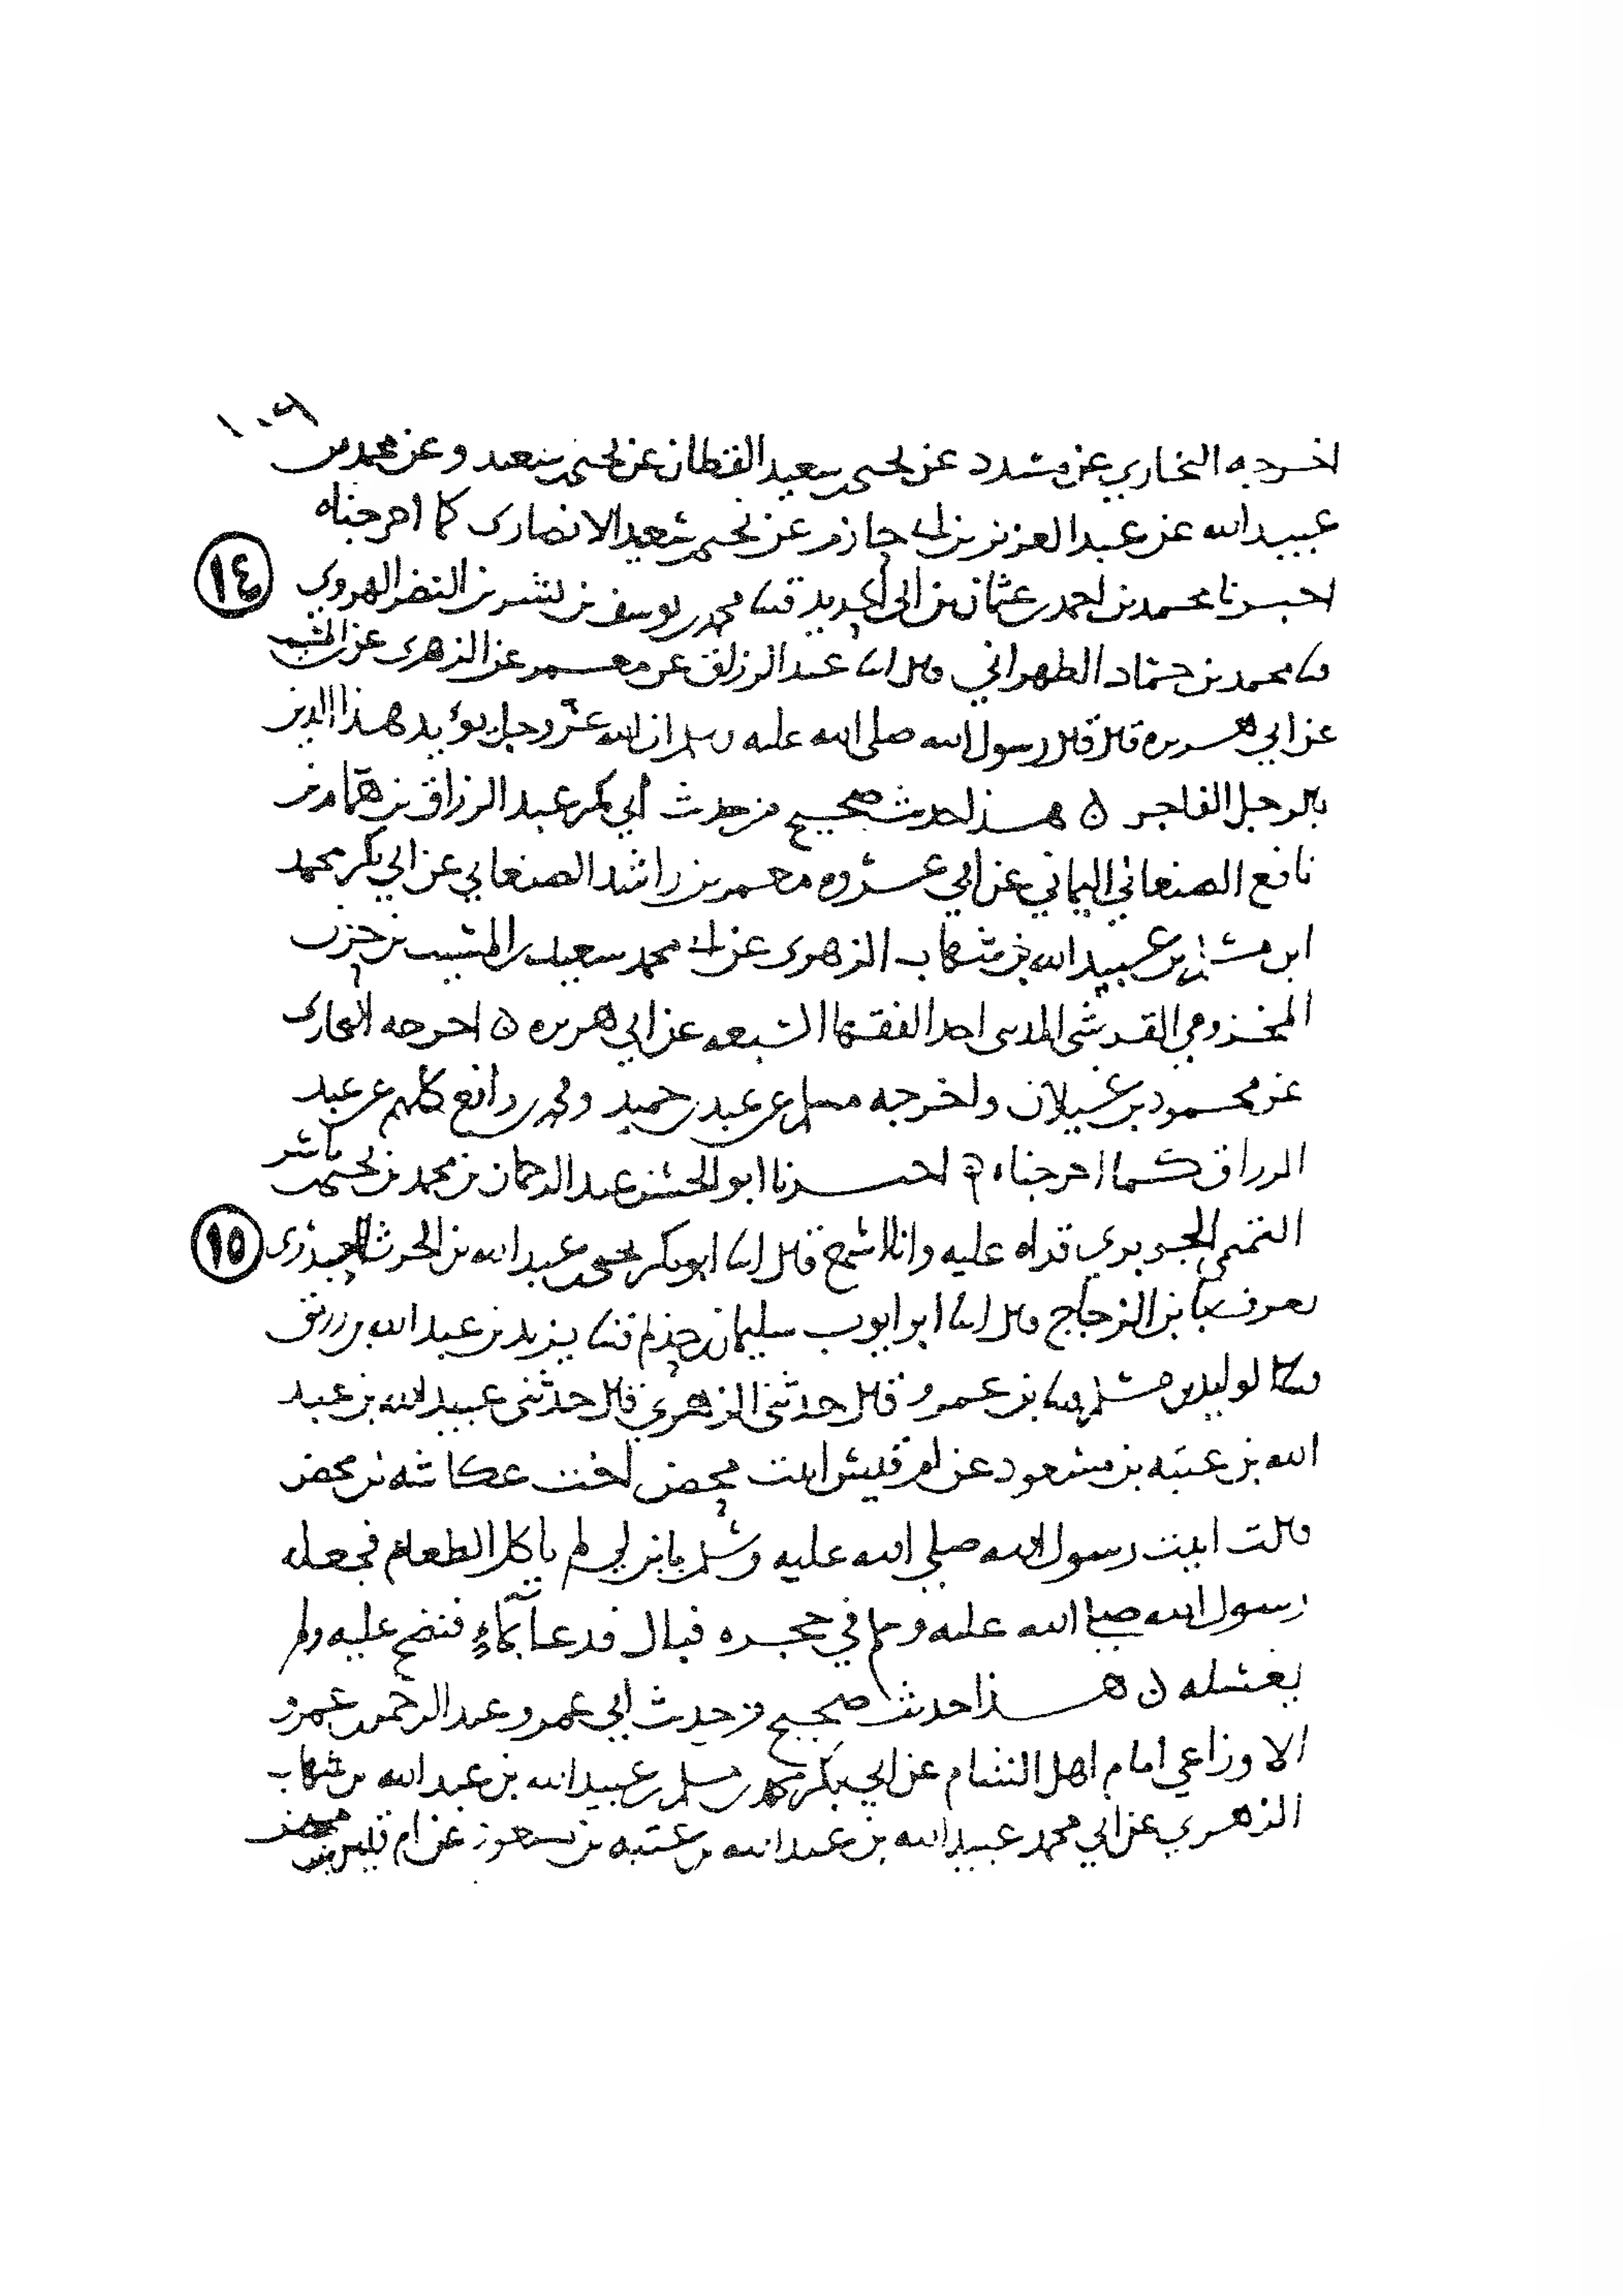 ١٠٦
اخرجه البخاري عن مسدد عن يحيى بن سعيد القطان عن يحيى بن سعيد وعن محمد بن
عبيد الله عن عبد العزيز بن ابي حازم عن يحيى بن سعيد الانصارى كما اخرجناه
١٤
اخبرنا محمد بن احمد بن عثمان بن ابي الحديد ثنا محمد بن يوسف بن بشر بن النضر الهروي
ثنا محمد بن حماد الطهراني قال انا عبد الرزاق عن معمر عن الزهرى عن ابن المسيب
عن ابي هريره قال قال رسول الله صلى الله عليه وسلم ان الله عز وجل يؤيد هذا الدين
بالرجل الفاجر ن هذا حديث صحيح من حديث أبي بكر عبد الرزاق بن همام بن
نافع الصنعاني اليماني عن ابي عروه معمر بن راشد الصنعاني عن ابي بكر محمد
ابن مسلم بن عبيد الله بن شهاب الزهرى عن ابي محمد سعيد بن المسيب بن حزن
المخزومي القرشى المدنى احد الفقها السبعه عن ابي هريره ن اخرجه البخارى
عن محمود بن غيلان واخرجه مسلم عن عبد بن حميد ومحمد بن رافع كلهم عن عبد
الرزاق كما اخرجناه اخبرنا ابو الحسن عبد الرحمان بن محمد بن يحيى بن ياسر
التميمي الجوبري قراه عليه وانا اسمع قال انا ابو بكر يحيى بن عبد الله بن الحرث العبدرى
١٥
يعرف بابن الزجاج قال انا ابو ايوب سليمان بن حذلم ثنا يزيد بن عبد الله بن رزيق
ثنا الوليد بن مسلم ثنا بن عمرو قال حدثنى الزهري قال حدثنى عبيد الله بن عبد
الله بن عتبه بن مسعود عن ام قيس ابنت محصن اخت عكاشه بن محصن
قالت اتيت رسول الله صلى الله عليه وسلم بابن لي لم ياكل الطعام فجعله
رسول الله صلى الله عليه وسلم في حجره فبال فدعا بماء فنضح عليه ولم
يغسله ن هذا حديث صحيح من حديث ابي عمرو عبد الرحمن بن عمرو
الاوزاعي امام اهل الشام عن ابي بكر محمد بن مسلم بن عبيد الله بن عبد الله بن شهاب
الزهري عن ابي محمد عبيد الله بن عبد الله بن عتبه بن مسعود عن ام قيس بنت محصن